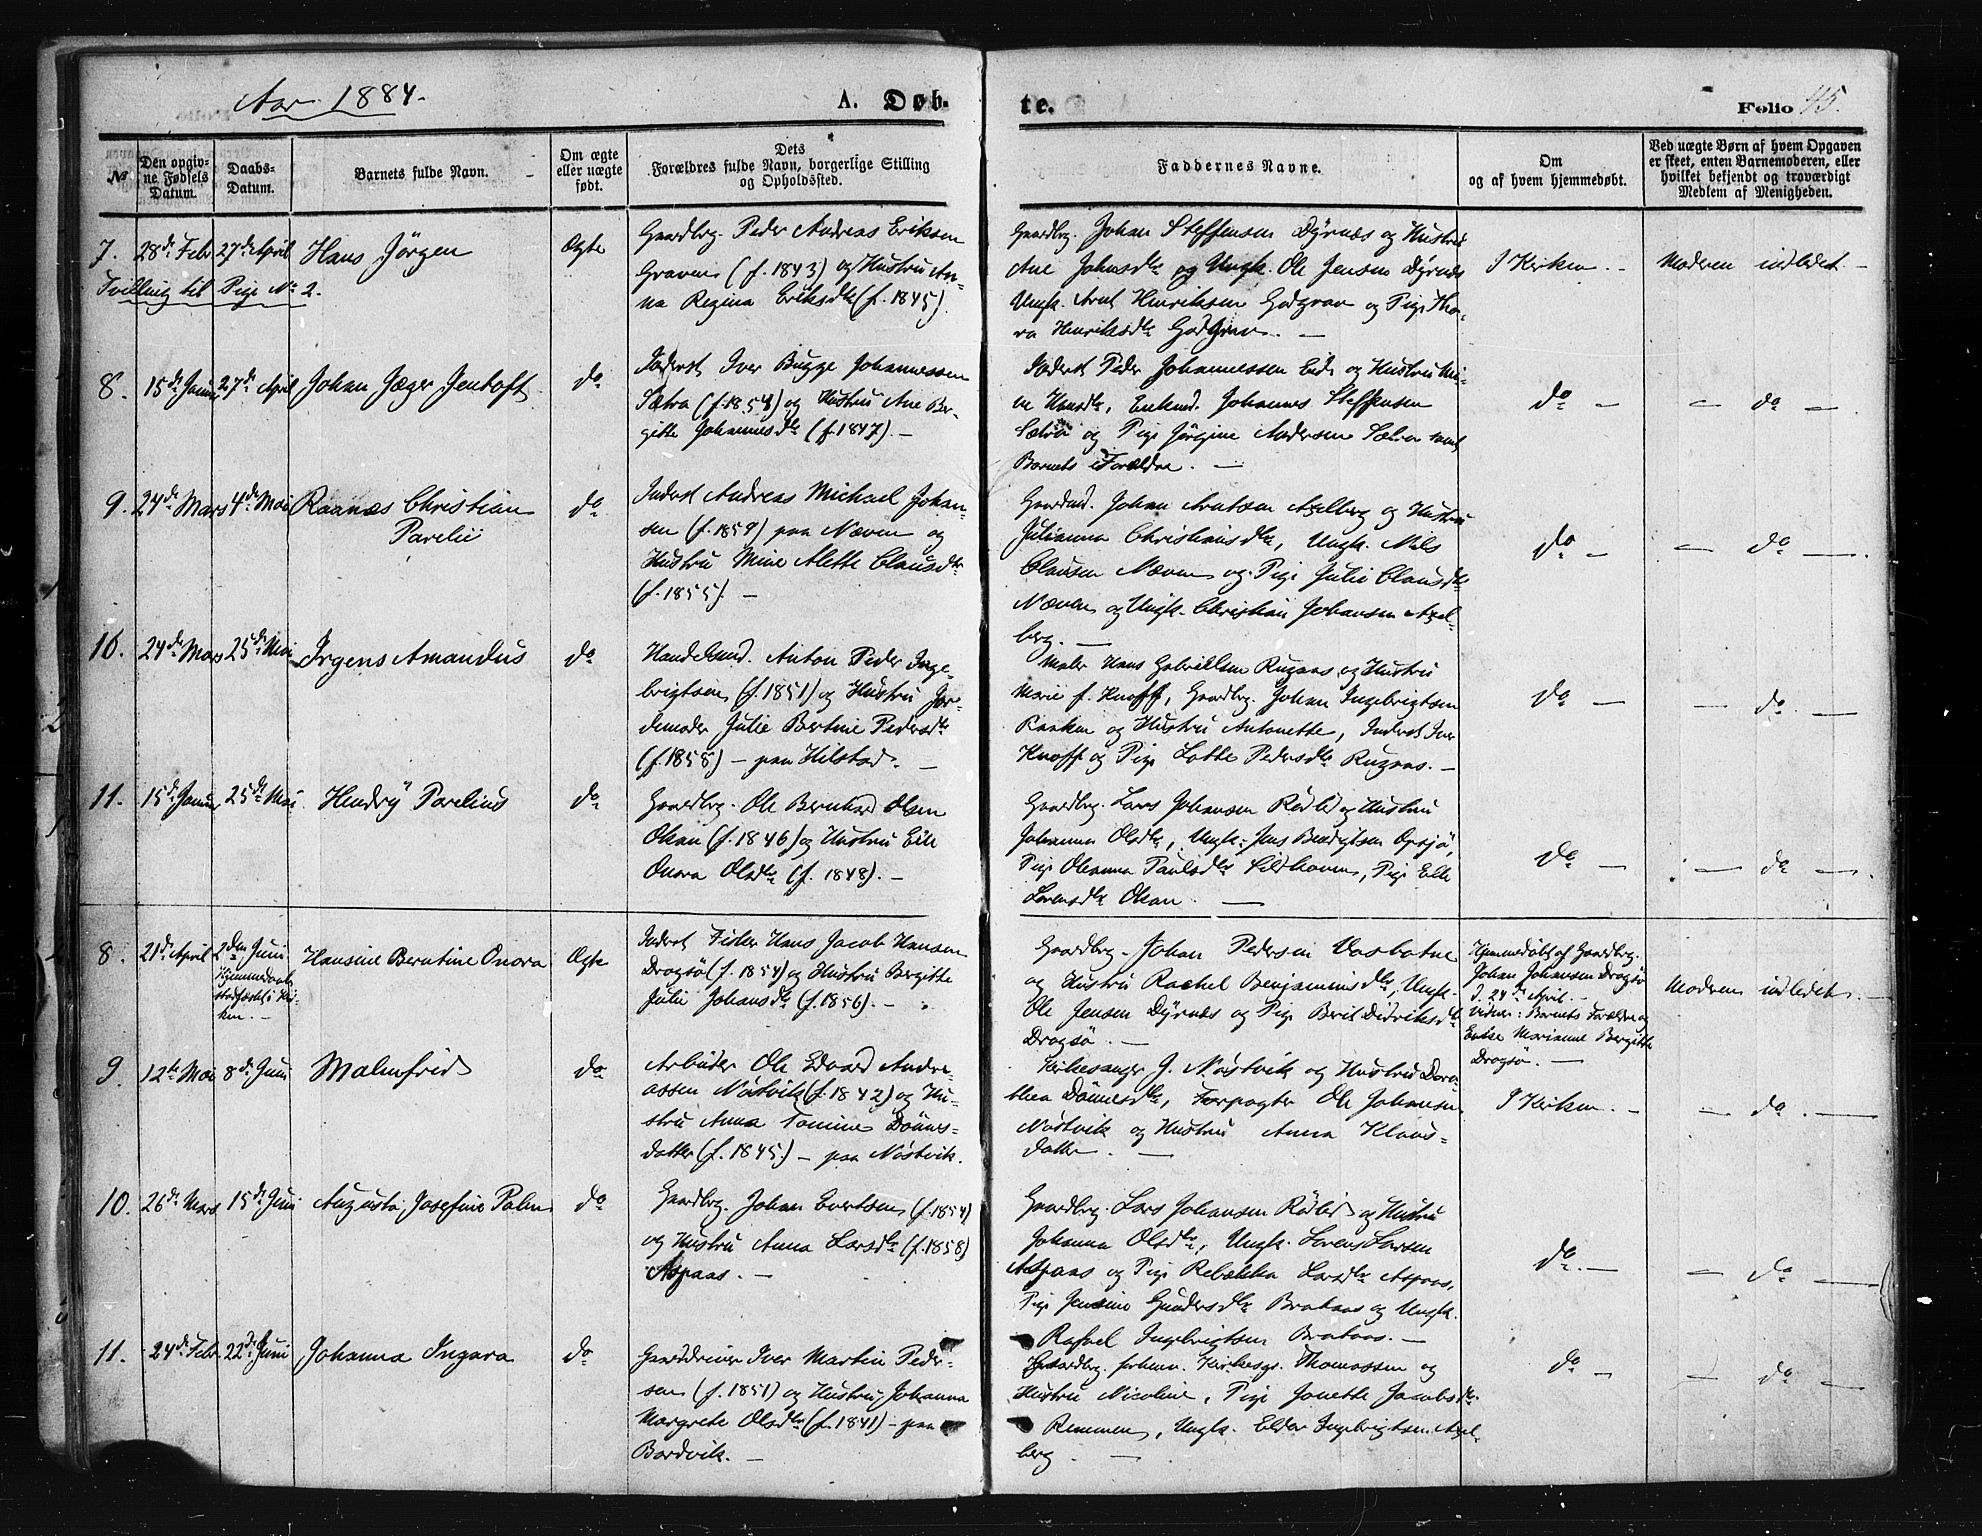 Aar 1884.
A. Døb-
te.
Folio 45.
No
Den opgiv-
ne Fødsels
Datum.
Daabs-
Datum.
Barnets fulde Navn.
Om ægte
eller uægte
født.
Dets
Forældres fulde Navn, borgerlige Stilling
og Opholdssted.
Faddernes Navne.
Om
og af hvem hjemmedøbt.
Ved uægte Børn af hvem Opgaven
er skeet, enten Barnemoderen, eller
hvilket bekjendt og troværdigt
Medlem af Menigheden.
7. 28de Febr 27de April Hans Jörgen Ægte
Tvilling til Pige No 2.
Gaardbrg. Peder Andreas Eriksen
Graven (f. 1843) og Hustru An-
na Regina Eriksdtr (f. 1845).
Gaardbrg. Johan Steffensen Dyrnæs og Hustru
Ane Johnsdtr og Ungk. Ole Jensen Dyrnæs
Ungk. Arnt Henriksen Godgrav og Pige Tho-
ra Henriksdtr Godgrav. —
I Kirken. — Moderen indledet. —
8. 15de Januar 27de April Johan Jæger Jentoft do
Inderst Iver Bugge Johannessen
Sætra (f. 1854) og Hustru Ane Ber-
gitte Johannesdtr (f. 1847). —
Inderst Peder Johannessen Eide og Hustru
Hansdtr, Enkemd. Johannes Steffensen
Sætra og Pige Jørgine Andersen Sætra samt
Barnets Forældre. —
do — — do —
9. 24de Mars 4de Mai Raanæs Christian do
Parelii
Inderst Andreas Michael Johan-
sen (f. 1859) paa Næven og
Hustru Mine Alette Clausdtr
(f. 1855). —
Gaardmd. Johan Arntsen Axelberg og Hustru
Julianna Christiansdtr, Ungk. Nils
Clausen Næven og Pige Julie Clausdtr
Næven og Ungk. Christian Johansen Axel-
berg. —
do — — do —
10. 24de Mars 25de Mai Irgens Amandus do
Handelsmd. Anton Peder Inge-
brigtsen (f. 1851) og Hustru Jor-
demoder Julie Bertine Pedersdtr
(f. 1858) — paa Hilstad. —
Maler Hans Gabrielsen Rugaas og Hustru
Marie f. Knoff, Gaardbrg. Johan Ingebrigtsen
og Hustru Antonette, Inderst Iver
Knoff og Pige Lotte Pedersdtr Rugaas. —
do — — do. —
11. 15de Januar 25de Mai Hendry Parelius do
Gaardbrg. Ole Bernhard Olsen
Olsan (f. 1846) og Hustru Elle
Onora Olsdtr (f. 1848). —
Gaardbrg. Lars Johansen Rødlid og Hustru
Johanna Olsdtr, Ungk. Jens Bendigtsen
Pige Oleanna Paulsdtr Sildhaven, Pige Elle
Lorensdtr Olsan. —
do — — do —
8. 21de April 2den Juni Hansine Berntine Onora Ægte
Hjemmedaab
stadfæstet i Kir-
ken. —
Inderst Fisker Hans Jacob Hansen
Dragsö (f. 1854) og Hustru Bergitte
Julie Johansdtr (f. 1856). —
Gaardbrg. Johan Pedersen Vasbotne
og Hustru Rachel Benjaminsdtr, Ungk.
Ole Jensen Dyrnæs og Pige Berit Didriksdtr
Dragsö. —
Hjemmedøbt af Gaardbrg.
Johan Johansen Dragsö
d. 24de April. —
Vidner: Barnets Forældre og
Enke Marianne Bergitte
Dragsö. —
Moderen indledet. —
9. 12te Mai 8de Juni Malmfrid do
Arbeider Ole Edvard Andre-
assen Nøstvik (f. 1842) og Hu-
stru Anna Tomine Dönnes-
datter (f. 1845) — paa Nøstvik.
Kirkesanger J. Nøstvik og Hustru Doro-
thea Dönnesdtr, Forpagter Ole Johansen
Nøstvik og Hustru Anna Klaus-
datter. —
I Kirken. — — do. —
10. 26de Mars 15de Juni Augusta Josefine Palm do
Gaardbrg. Johan Evertsen (f. 1854)
og Hustru Anna Larsdtr (f. 1858)
Aspaas. —
Gaardbrg. Lars Johansen Rødlid og Hustru
Johanna Olsdtr, Ungk. Lorens Larsen
Aspaas og Pige Rebækka Larsdtr Aspaas,
Pige Jensine Gundersdtr Brataas og Ungk.
Rafael Ingebrigtsen Brataas. —
do. — — do —
11. 24de Febr 22de Juni Johanna Ingara do
Gaardbruger Iver Martin Peder-
sen (f. 1851) og Hustru Johanna
Margrete Olsdtr (f. 1841) — paa
Bardvik. —
Gaardbrg. forhenv. Kirkesgr. Thomassen og
Hustru Nicoline, Pige Jonette Jacobsdtr
Remmen, Ungk. Eldor Ingebrigtsen Axel-
berg. —
do — — do —